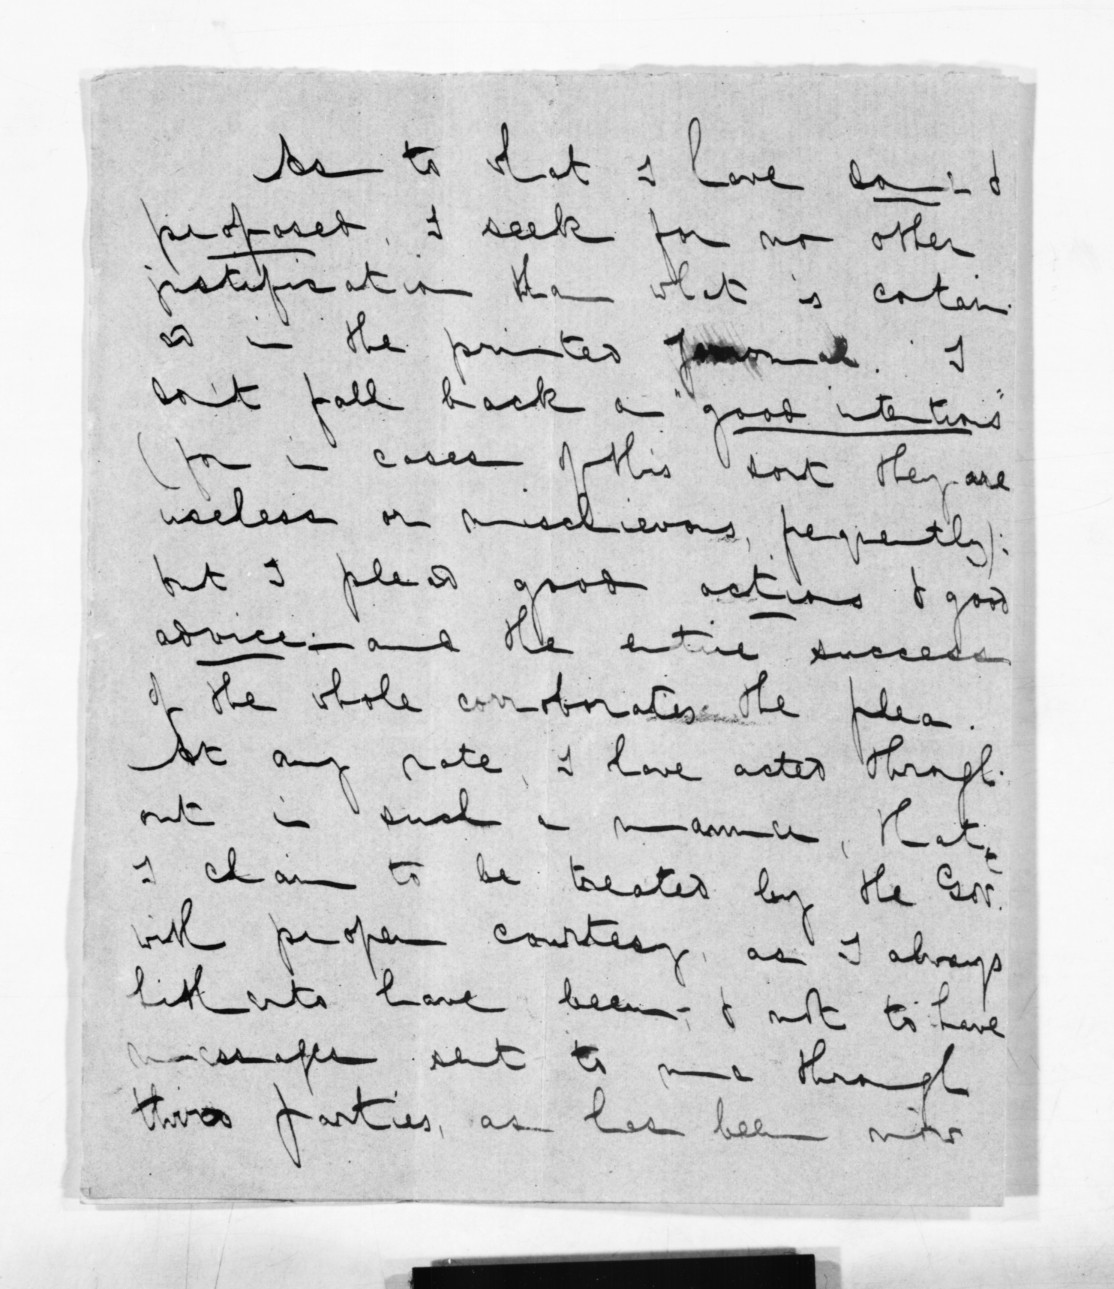 As to that I have said
proposed, I seek for no other
justification than what is contain-
ed in the printed Journal. I
don't fall back on "good intentions"
(for in cases of this sort they are
useless or mischievous, frequently):
but I plead good actions & good
advice:— and the entire success
of the whole corroborates the plea.
At any rate, I have acted through-
out in such a manner, that
I claim to be treated by the Govt.
with proper courtesy, as I always
hitherto have been; & not to have
messages sent to me through
third parties, as has been now